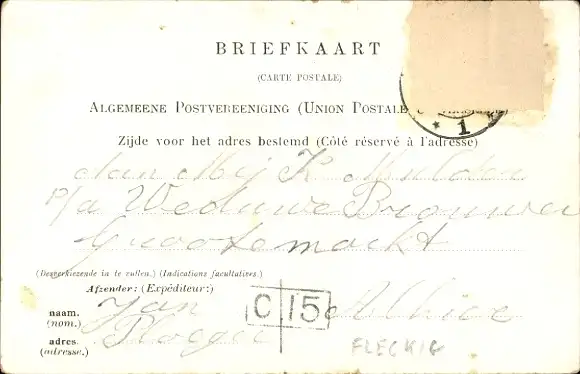 BRIEFKAART
(CARTE POSTALE)
ALGEMEENE POSTVEREENIGING (UNION POSTALE
* 1
Zijde voor het adres bestemd (Côté réservé à l'adresse)
Aan Mej K Mulder
p/a Weduwe Brouwer
Grootemarkt
(Desverkiezende in te vullen.) (Indications facultatives.)
Afzender: (Expéditeur:)
naam. Jan
(nom.)
C 15
adres
(adresse.)
FLECKIG